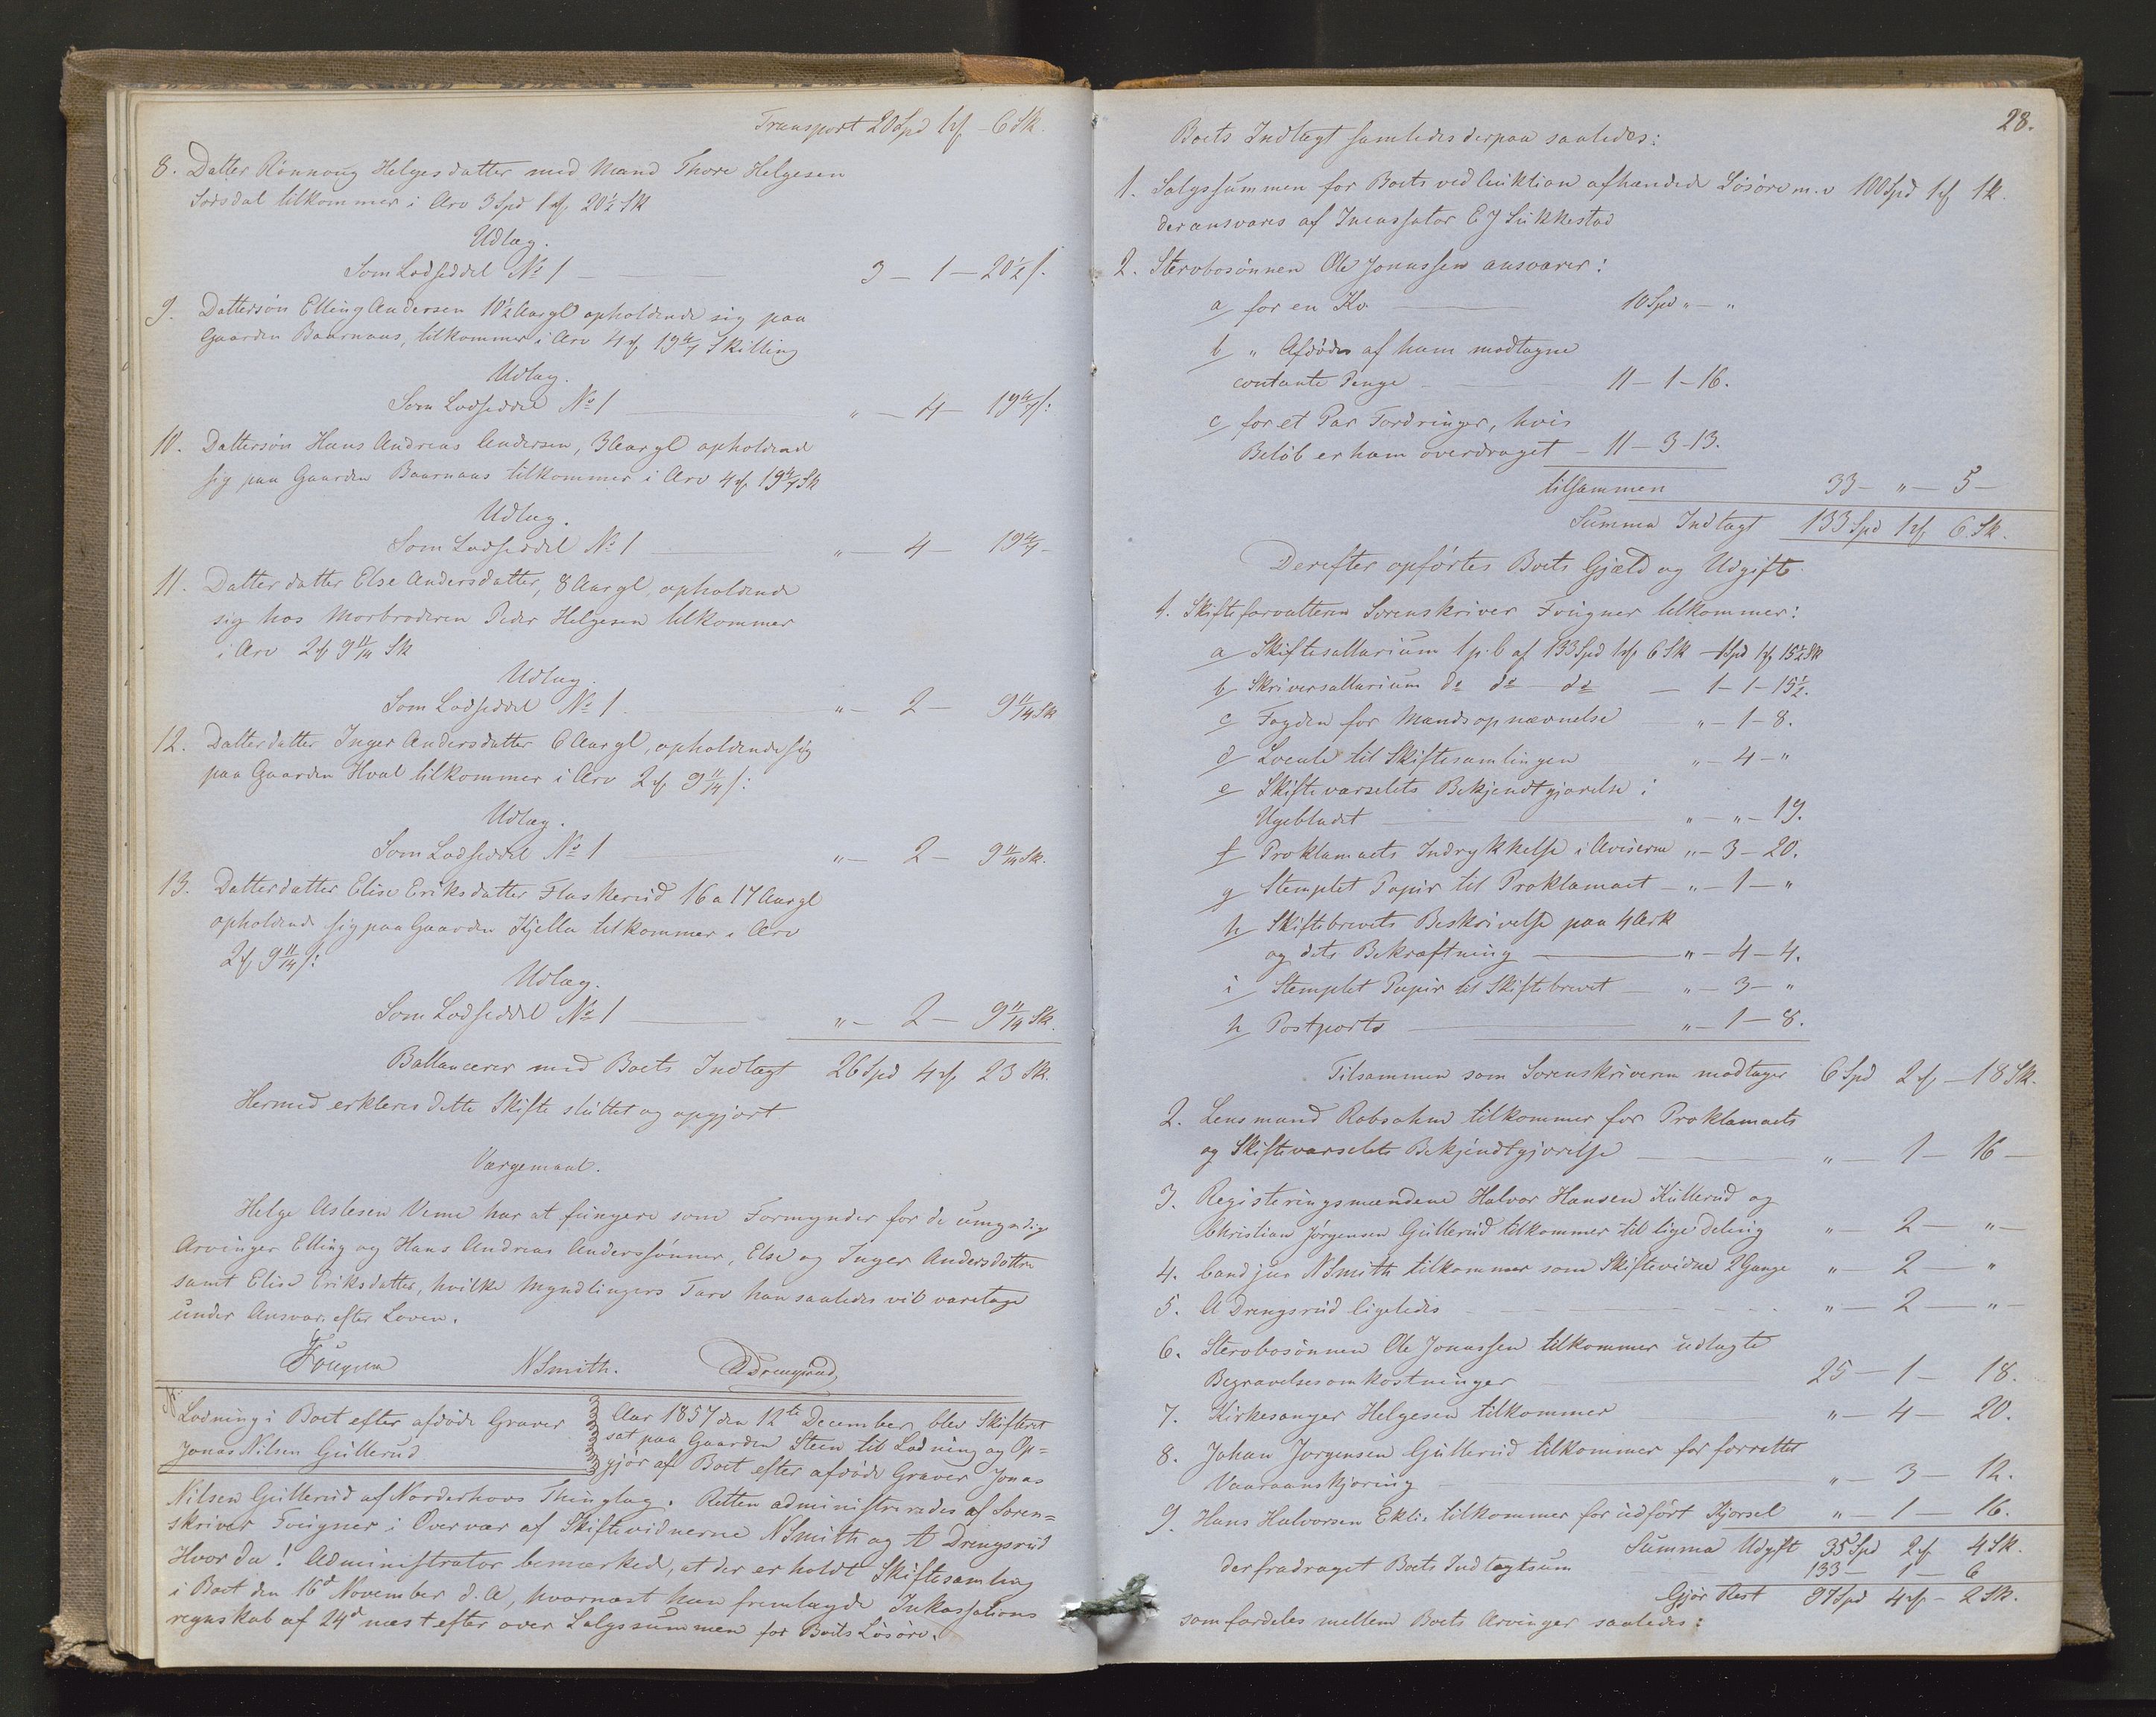 Transport 20 Spd 1 ₰ - 6 Sk.
8. Datter Rønnoug Helgesdatter med Mand Thore Helgesen
Sørsdal tilkommer i Arv 3 Spd 1 ₰ 20½ Sk
Udlæg.
Som Lodseddel No 1 — 3 — 1 — 20½ s.
9. Dattersøn Elling Andersen 10½ Aar gl opholdende sig paa
Gaarden Baarnaas, tilkommer i Arv 4 ₰ 19 4/7 Skilling
Udlæg.
Som Lodseddel No 1 — " — 4 — 19 4/7 s:
10. Dattersøn Hans Andreas Andersen, 3 Aar gl opholdend
sig paa Gaarden Baarnaas tilkommer i Arv 4 ₰ 19 4/7 Sk
Udlæg.
Som Lodseddel No 1 — " — 4 — 19 4/7 -
11. Datterdatter Else Andersdatter, 8 Aar gl, opholdende
sig hos Morbroderen Peder Helgesen tilkommer
i Arv 2 ₰ 9 11/14 Sk
Udlæg.
Som Lodseddel No 1. — " — 2 — 9 11/14 Sk
12. Datterdatter Inger Andersdatter 6 Aar gl, opholdende sig
paa Gaarden Hval tilkommer i Arv 2 ₰ 9 11/14 s:
Udlæg.
Som Lodseddel No 1 — " — 2 — 9 11/14 Sk.
13. Datterdatter Elise Eriksdatter Flaskerud 16 a 17 Aar gl
opholdende sig paa Gaarden Kjella tilkommer i Arv
2 ₰ 9 11/14 s:
Udlæg.
Som Lodseddel No 1 — " — 2 — 9 11/14 Sk.
Ballancerer med Boets Indtægt 26 Spd 4 ₰ 23 Sk.
Hermed erkleres dette Skifte sluttet og opgjort
Værgemaal.
Helge Aslesen Veme har at fungere som Formynder for de umyndige
Arvinger Elling og Hans Andreas Anderssønner, Else og Inger Andersdøttre
samt Elise Eriksdatter, hvilke Myndlingers Tarv han saaledes vil varetage
under Ansvar efter Loven.
Fougner NSmith. ADrengsrud
Lodning i Boet efter afdøde Graver
Jonas Nilsen Gullerud
Aar 1857 den 12te December, blev Skifteret
sat paa Gaarden Steen til Lodning og Op=
gjør af Boet efter afdøde Graver Jonas
Nilsen Gullerud af Norderhovs Thinglag. Retten administreredes af Soren=
skriver Fougner i Overvær af Skiftevidnerne NSmith og A Drengsrud
Hvor da! Administrator bemærked, at der er holdt Skiftesamling
i Boet den 16d November d. A, hvornæst han fremlagde Inkassations
regnskab af 24d næst efter over Salgssummen for Boets Løsøre.
28.
Boets Indtægt samledes derpaa saaledes:
1. Salgssummen for Boets ved Auktion afhændede Løsøre m. v 100 Spd 1 ₰ 1 k.
der ansvares af Incassator E J Sukkestad
2. Stervbosønnen Ole Jonassen ansvarer:
a/ for en Ko — 10 Spd " — "
b/ " Afdødes af ham modtagne
contante Penge — 11 — 1 — 16.
c/ for et Par Fordringer, hvis
Beløb er ham overdraget — 11 — 3 - 13.
tilsammen 33 — " — 5 —
Summa Indtægt 133 Spd 1 ₰ 6 Sk.
Derefter opførtes Boets Gjæld og Udgift
1. Skifteforvalteren Sorenskriver Fougner tilkommer:
a/ Skiftesallarium 1 p. C af 133 Spd 1 ₰ 6 Sk — 1 Spd 1 ₰ 15½ Sk
b/ Skriversallarium do do do — 1 — 1 — 15½.
c/ Fogden for Mandsopnævnelse — " — 1 — 8.
d/ Locale til Skiftesamlingen " — 4 — "
e/ Skiftevarselets Bekjendtgjørelse i
Ugebladet — " — " — 19.
f/ Proklamaets Indrykkelse i Aviserne " — 3 — 20.
g/ Stemplet Papir til Proklamaet — " — 1 — "
h/ Skiftebrevets Beskrivelse paa 4 Ark
og dets Bekræftning — " — 4 — 4.
i/ Stemplet Papir til Skiftebrevet — " — 3 — "
k/ Postporto — " — 1 — 8.
Tilsammen som Sorenskriveren modtager 6 Spd 2 ₰ — 18 Sk.
2. Lensmand Robsahm tilkommer for Proklamaets
og Skiftevarselets Bekjendtgjørelse — " — 1 — 16 —
3. Registeringsmændene Halvor Hansen Kullerud og
Christian Jørgensen Gullerud tilkommer til lige Deling " — 2 — " —
4. Cand jur NSmith tilkommer som Skiftevidne 2 Gange " — 2 — "
5. A Drengsrud ligeledes — " — 2 — " —
6. Stervbosønnen Ole Jonassen tilkommer udlagte
Begravelsesomkostninger 25 — 1 — 18.
7. Kirkesanger Helgesen tilkommer " — 4 — 20.
8. Johan Jørgensen Gullerud tilkommer for forrettet
Vaaraanskjøring — " — 3 — 12.
9. Hans Halvorsen Eklie tilkommer for udført Kjørsel " — 1 — 16.
Summa Udgift 35 Spd 2 ₰ 4 Sk.
derfradraget Boets Indtægtsum 133 — 1 — 6
Gjør Rest 97 Spd 4 ₰ — 2 Sk.
som fordeles mellem Boets Arvinger saaledes: